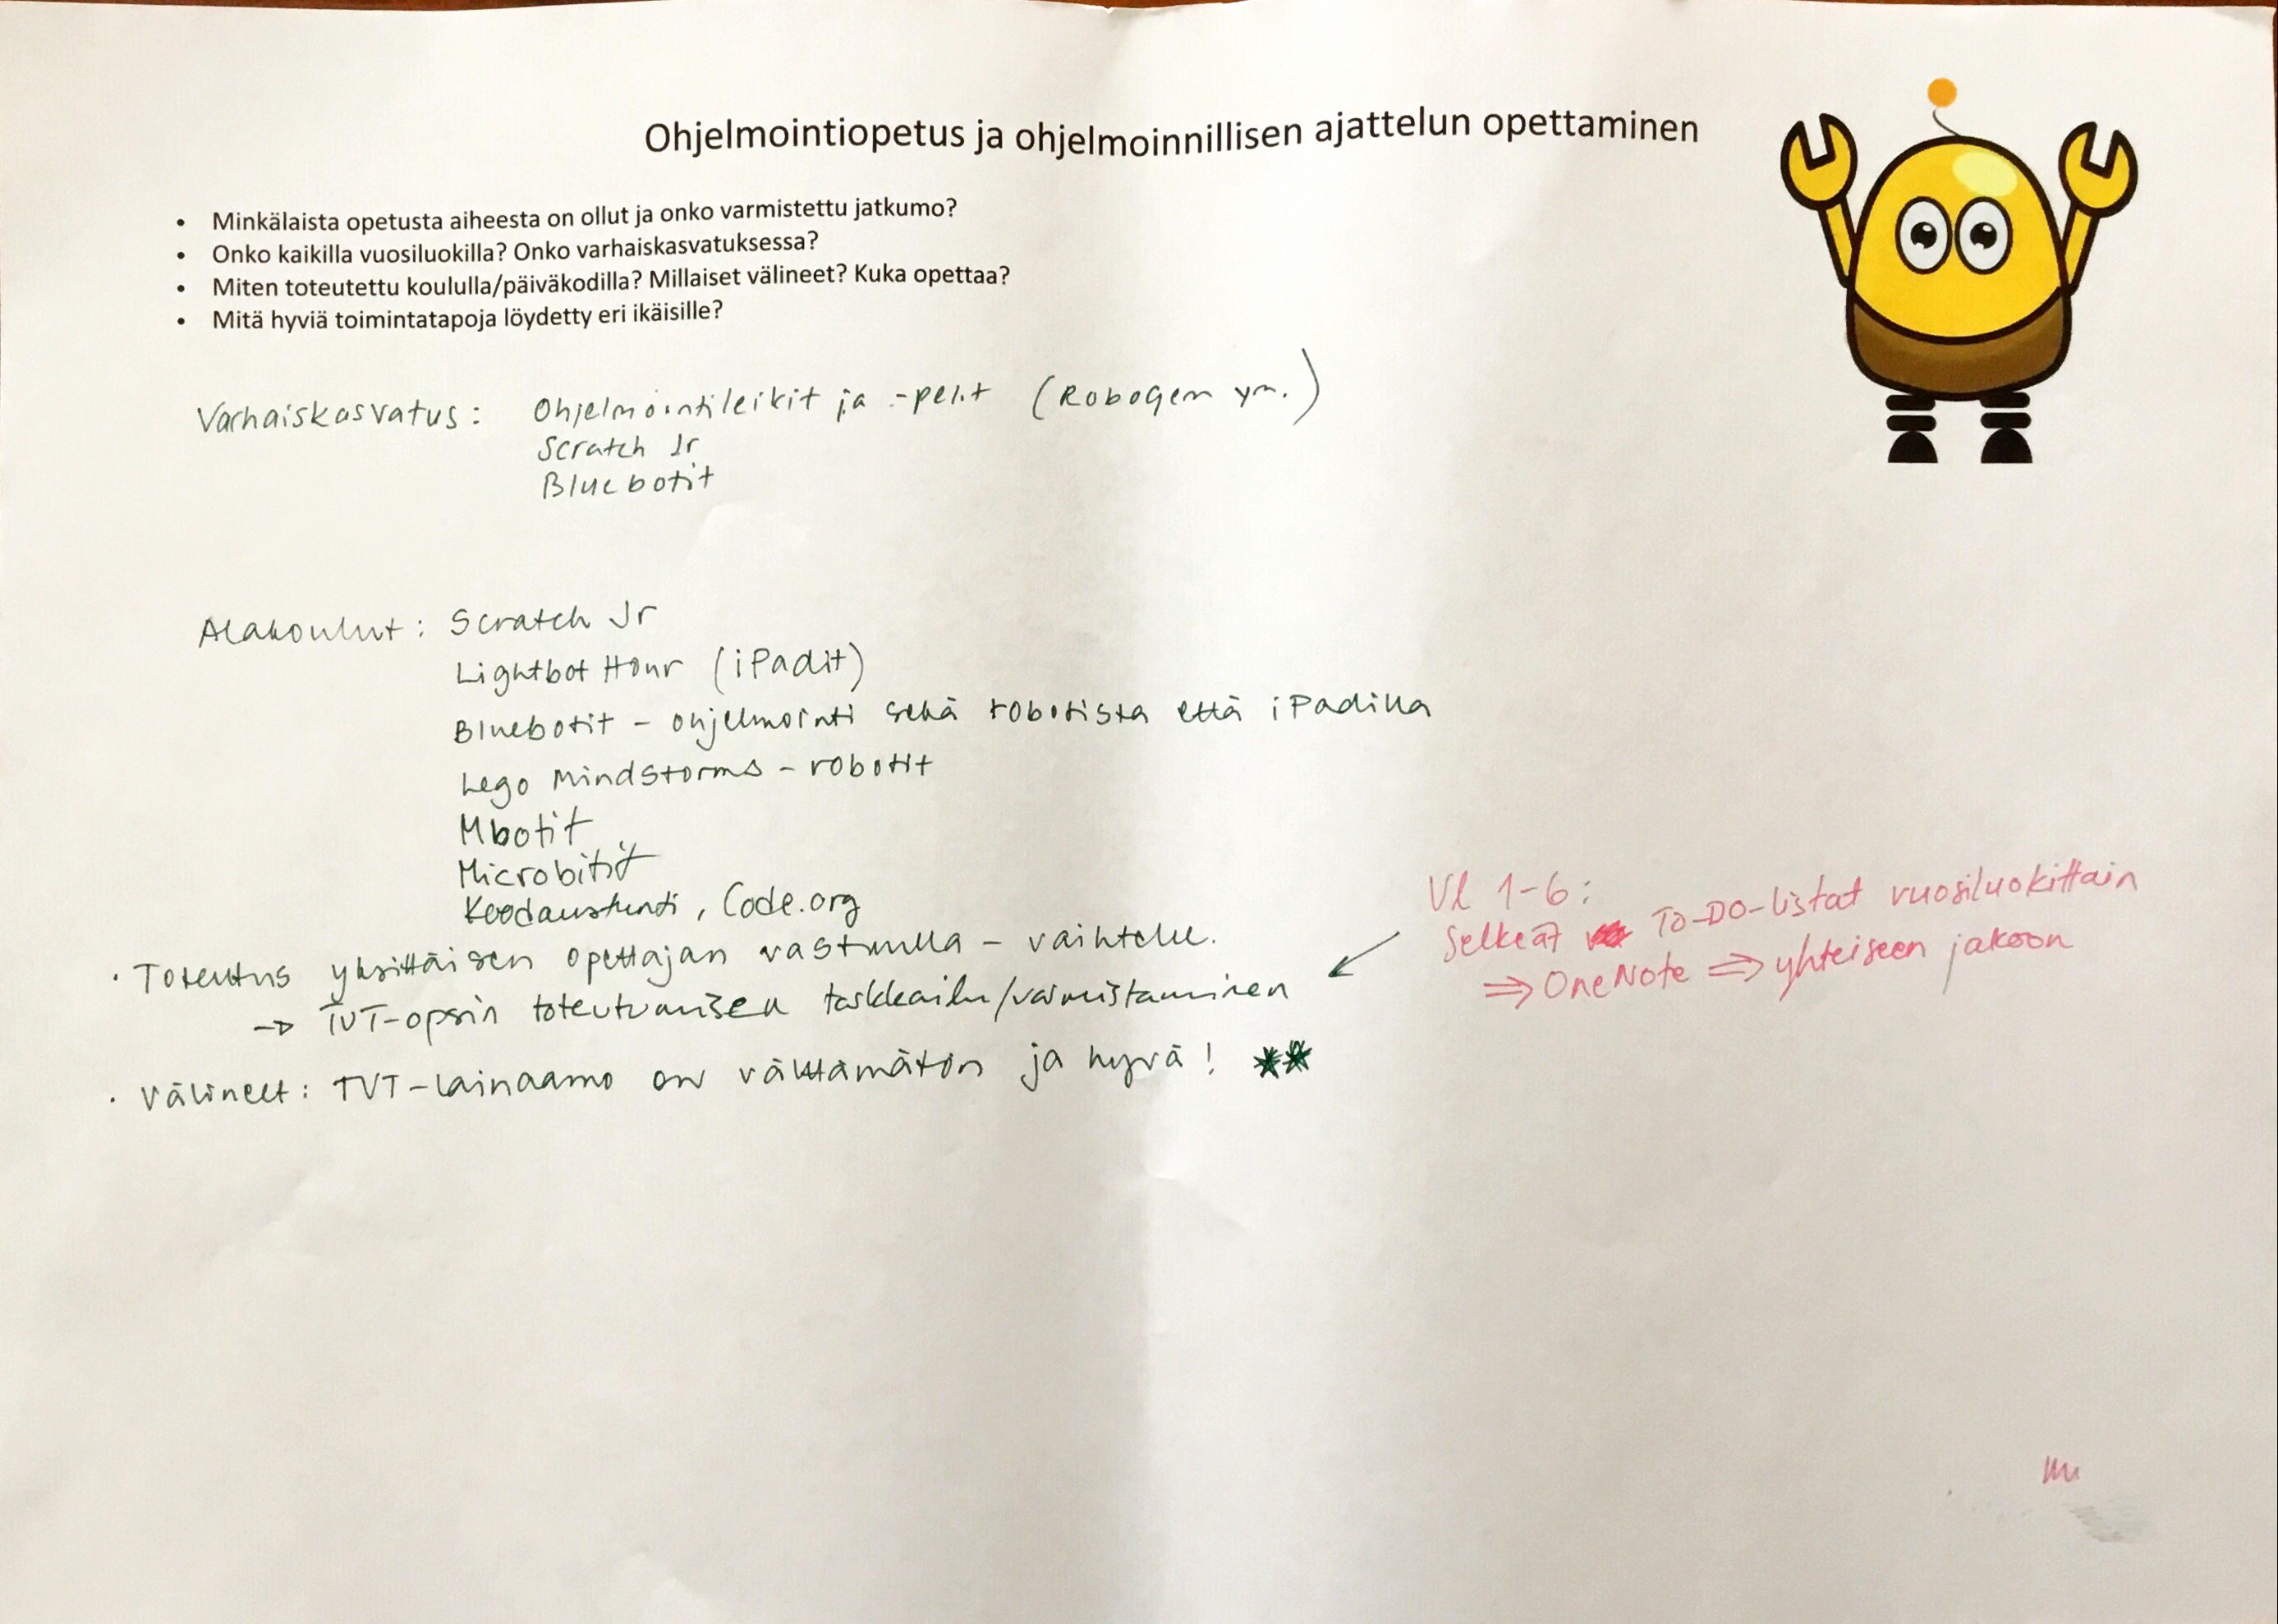 Ohjelmointiopetus ja ohjelmoinnillisen ajattelun opettaminen
• Minkälaista opetusta aiheesta on ollut ja onko varmistettu jatkumo?
• Onko kaikilla vuosiluokilla? Onko varhaiskasvatuksessa?
• Miten toteutettu koululla/päiväkodilla? Millaiset välineet? Kuka opettaa?
• Mitä hyviä toimintatapoja löydetty eri ikäisille?
Varhaiskasvatus: Ohjelmointileikit ja -pelit (Robogem ym.)
Scratch Jr
Bluebotit
Alakoulut: Scratch Jr
Lightbot Hour (iPadit)
Bluebotit - ohjelmointi sekä robotista että iPadilla
Lego Mindstorms - robotit
Mbotit
Microbitit
Koodaustunti, Code.org
· Toteutus yksittäisen opettajan vastuulla - vaihtelu.
→ TVT-opsin toteutumisen tarkkailu/varmistaminen
· Välineet: TVT-lainaamo on välttämätön ja hyvä! **
Vl 1-6:
Selkeät TO-DO-listat vuosiluokittain
⇒ OneNote ⇒ yhteiseen jakoon